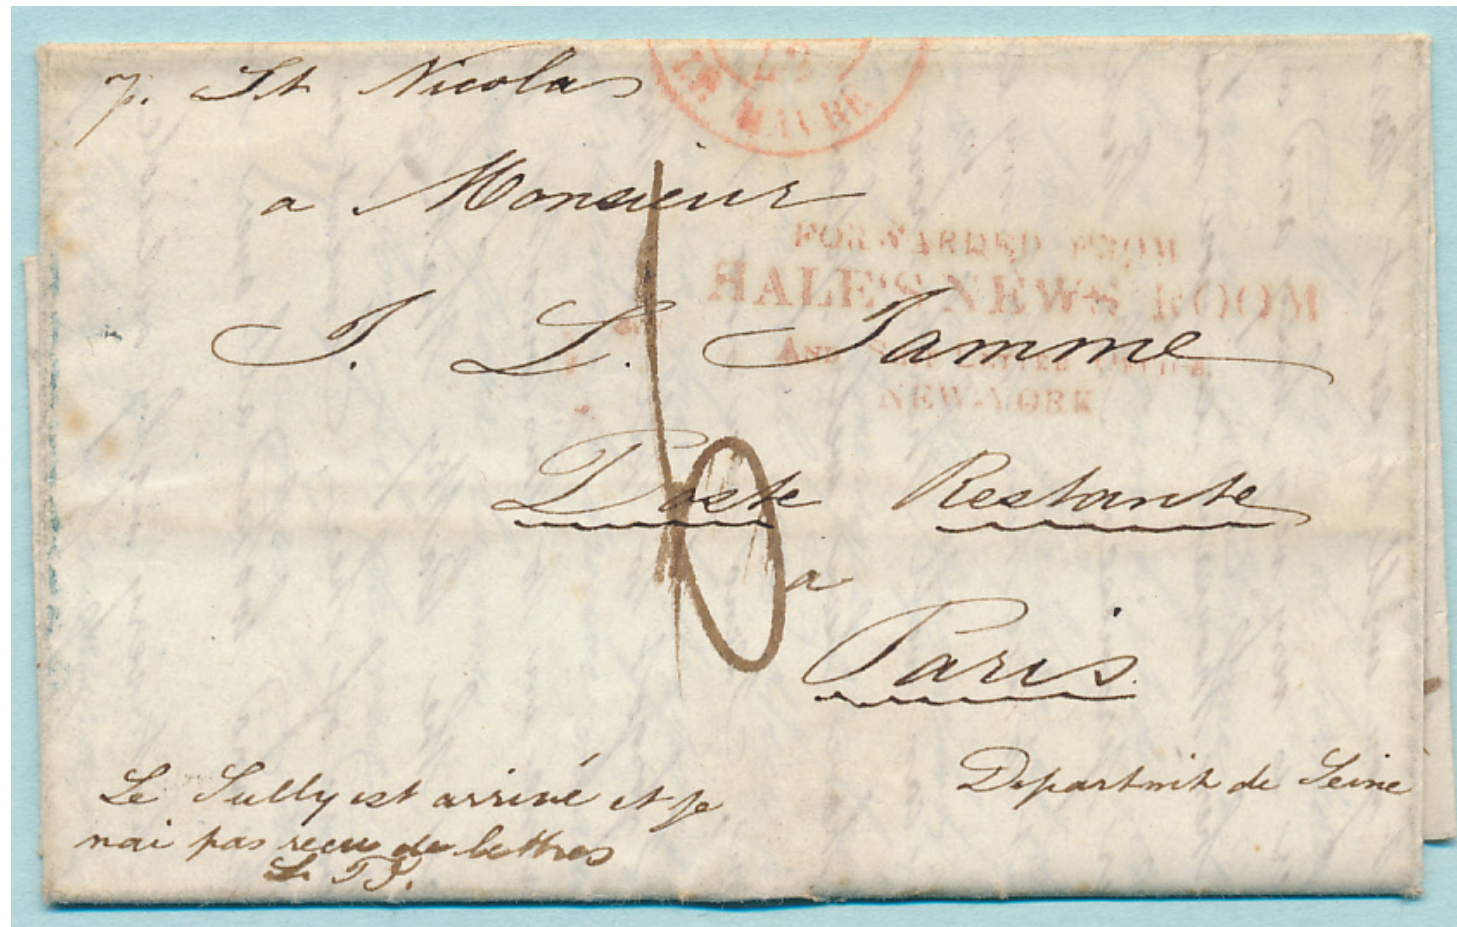 p. St Nicolas
23
LE HAVRE
a Monsieur
FORWARDED FROM
HALE'S NEWS ROOM
J. L. Tamme
AND SHIP LETTER OFFICE
NEW-YORK
Poste Restante
a
Paris
16
Departmt de Seine
Le Sully est arrivé et je
nai pas recu de lettres